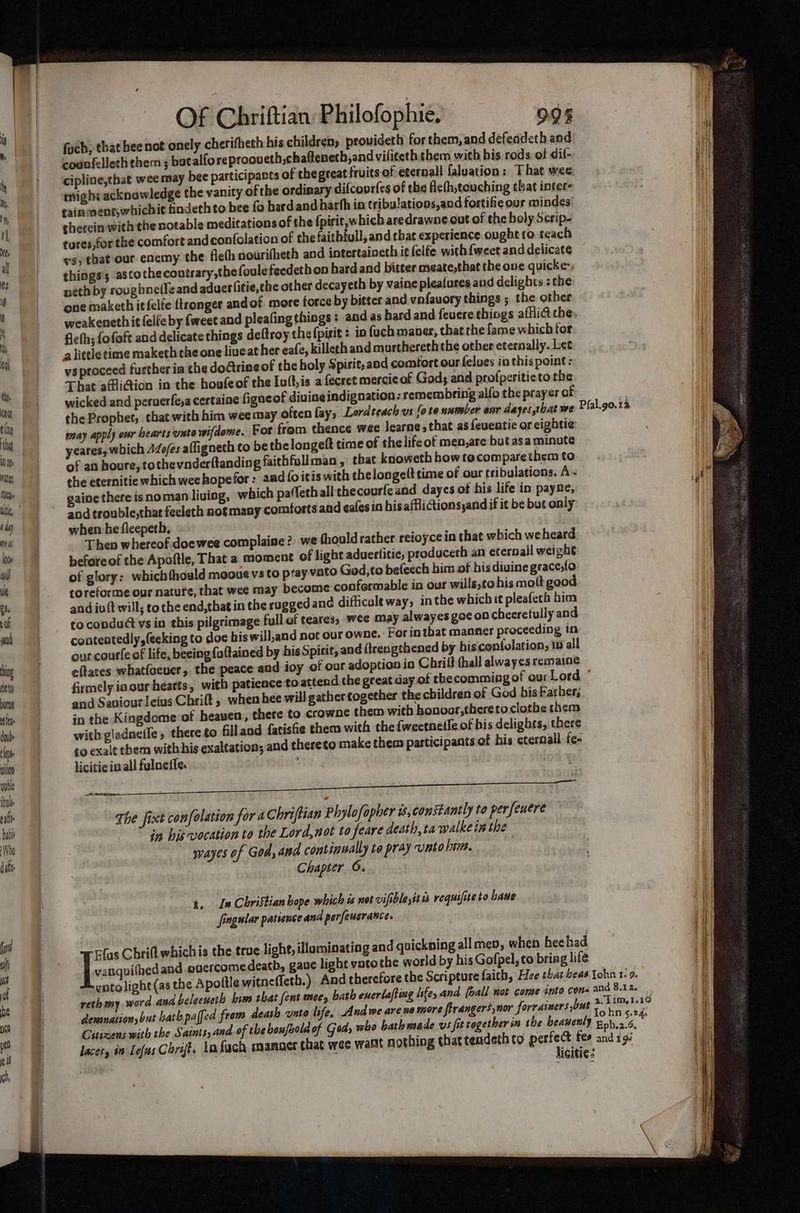 Of Chriſtian Philoſophie. 995
ſuch, that hee not onely cheriſheth his children, prouideth for them, and defendeth and
counſelleth them; but alſo reprooueth, chaſteneth, and viſiteth them with his rods of diſ-
cipline, that wee may bee participants of the great fruits of eternall ſaluation: That wee
might acknowledge the vanity of the ordinary diſcourſes of the fleſh, touching that inter-
tainment, which it findeth to bee ſo hard and harſh in tribulations, and fortifie our mindes
therein with the notable meditations of the ſpirit, which are drawne out of the holy Scrip-
tures, for the comfort and conſolation of the faithfull, and that experience ought to teach
vs, that our enemy the fleſh nouriſheth and intertaineth it ſelfe with ſweet and delicate
things; as to the contrary, the ſoule feedeth on hard and bitter meate, that the one quicke-
neth by roughneſſe and aduerſitie, the other decayeth by vaine pleaſures and delights: the
one maketh it ſelfe ſtronger and of more force by bitter and vnſauory things; the other
weakeneth it ſelfe by ſweet and pleaſing things: and as hard and ſeuere things afflict the
fleſh; ſo ſoft and delicate things deſtroy the ſpirit: in ſuch maner, that the ſame which for
a little time maketh the one liue at her eaſe, killeth and murthereth the other eternally. Let
vs proceed further in the doctrine of the holy Spirit, and comfort our ſelues in this point:
That affliction in the houſe of the Iuſt, is a ſecret mercie of God; and proſperitie to the
wicked and peruerſe, a certaine ſigne of diuine indignation: remembring alſo the prayer of
the Prophet, that with him wee may often ſay, Lord teach vs ſo to number our dayes, that we Pſal. 90.12
may apply our hearts vnto wiſdome. For from thence wee learne, that as ſeuentie or eightie
yeares, which Moſes aſſigneth to be the longeſt time of the life of men, are but as a minute
of an houre, to the vnderſtanding faithfull man, that knoweth how to compare them to
the eternitie which wee hope for: and ſo it is with the longeſt time of our tribulations. A-
gaine there is no man liuing, which paſſeth all the courſe and dayes of his life in payne,
and trouble, that feeleth not many comforts and eaſes in his afflictions, and if it be but only
when he ſleepeth.
Then whereof doe wee complaine? we ſhould rather reioyce in that which we heard
before of the Apoſtle, That a moment of light aduerſitie, produceth an eternall weight
of glory: which ſhould mooue vs to pray vnto God, to beſeech him of his diuine grace, ſo
to reforme our nature, that wee may become conformable in our wills, to his moſt good
and iuſt will; to the end, that in the rugged and difficult way, in the which it pleaſeth him
to conduct vs in this pilgrimage full of teares, wee may alwayes goe on cheerefully and
contentedly, ſeeking to doe his will, and not our owne. For in that manner proceeding in
our courſe of life, beeing ſuſtained by his Spirit, and ſtrengthened by his conſolation, in all
eſtates whatſoeuer, the peace and ioy of our adoption in Chriſt ſhall alwayes remaine
firmely in our hearts, with patience to attend the great day of the comming of our Lord
and Sauiour Ieſus Chriſt, when hee will gather together the children of God his Father,
in the Kingdome of heauen, there to crowne them with honour, thereto clothe them
with gladneſſe, there to fill and ſatisfie them with the ſweetneſſe of his delights, there
to exalt them with his exaltation; and thereto make them participants of his eternall fe-
licitie in all fulneſſe.
The ſixt conſolation for a Chriſtian Phyloſopher is, conſtantly to perſeuere
in his vocation to the Lord, not to feare death, to walke in the
wayes of God, and continually to pray vnto him.
Chapter 6.
1. In Chriſtian hope which is not viſible, it is requiſite to haue
ſingular patience and perſeuerance.
IEſus Chriſt which is the true light, illuminating and quickning all men, when hee had
vanquiſhed and ouercome death, gaue light vnto the world by his Goſpel, to bring life
vnto light (as the Apoſtle witneſſeth.) And therefore the Scripture ſaith, Hee that hea- Iohn 1. 9.
reth my word and beleeueth him that ſent mee, hath euerlaſting life, and ſhall not come into con- and 8.12.
demnation, but hath paſſed from death vnto life. And we are no more ſtrangers, nor forrainers, but 2. Tim. 1.10
Citizens with the Saints, and of the houſhold of God, who hath made vs ſit together in the heauenly Iohn 5.24.
laces, in Ieſus Chriſt. In ſuch manner that wee want nothing that tendeth to perfect fe- Eph. 2.6.
and 19.
licitie: